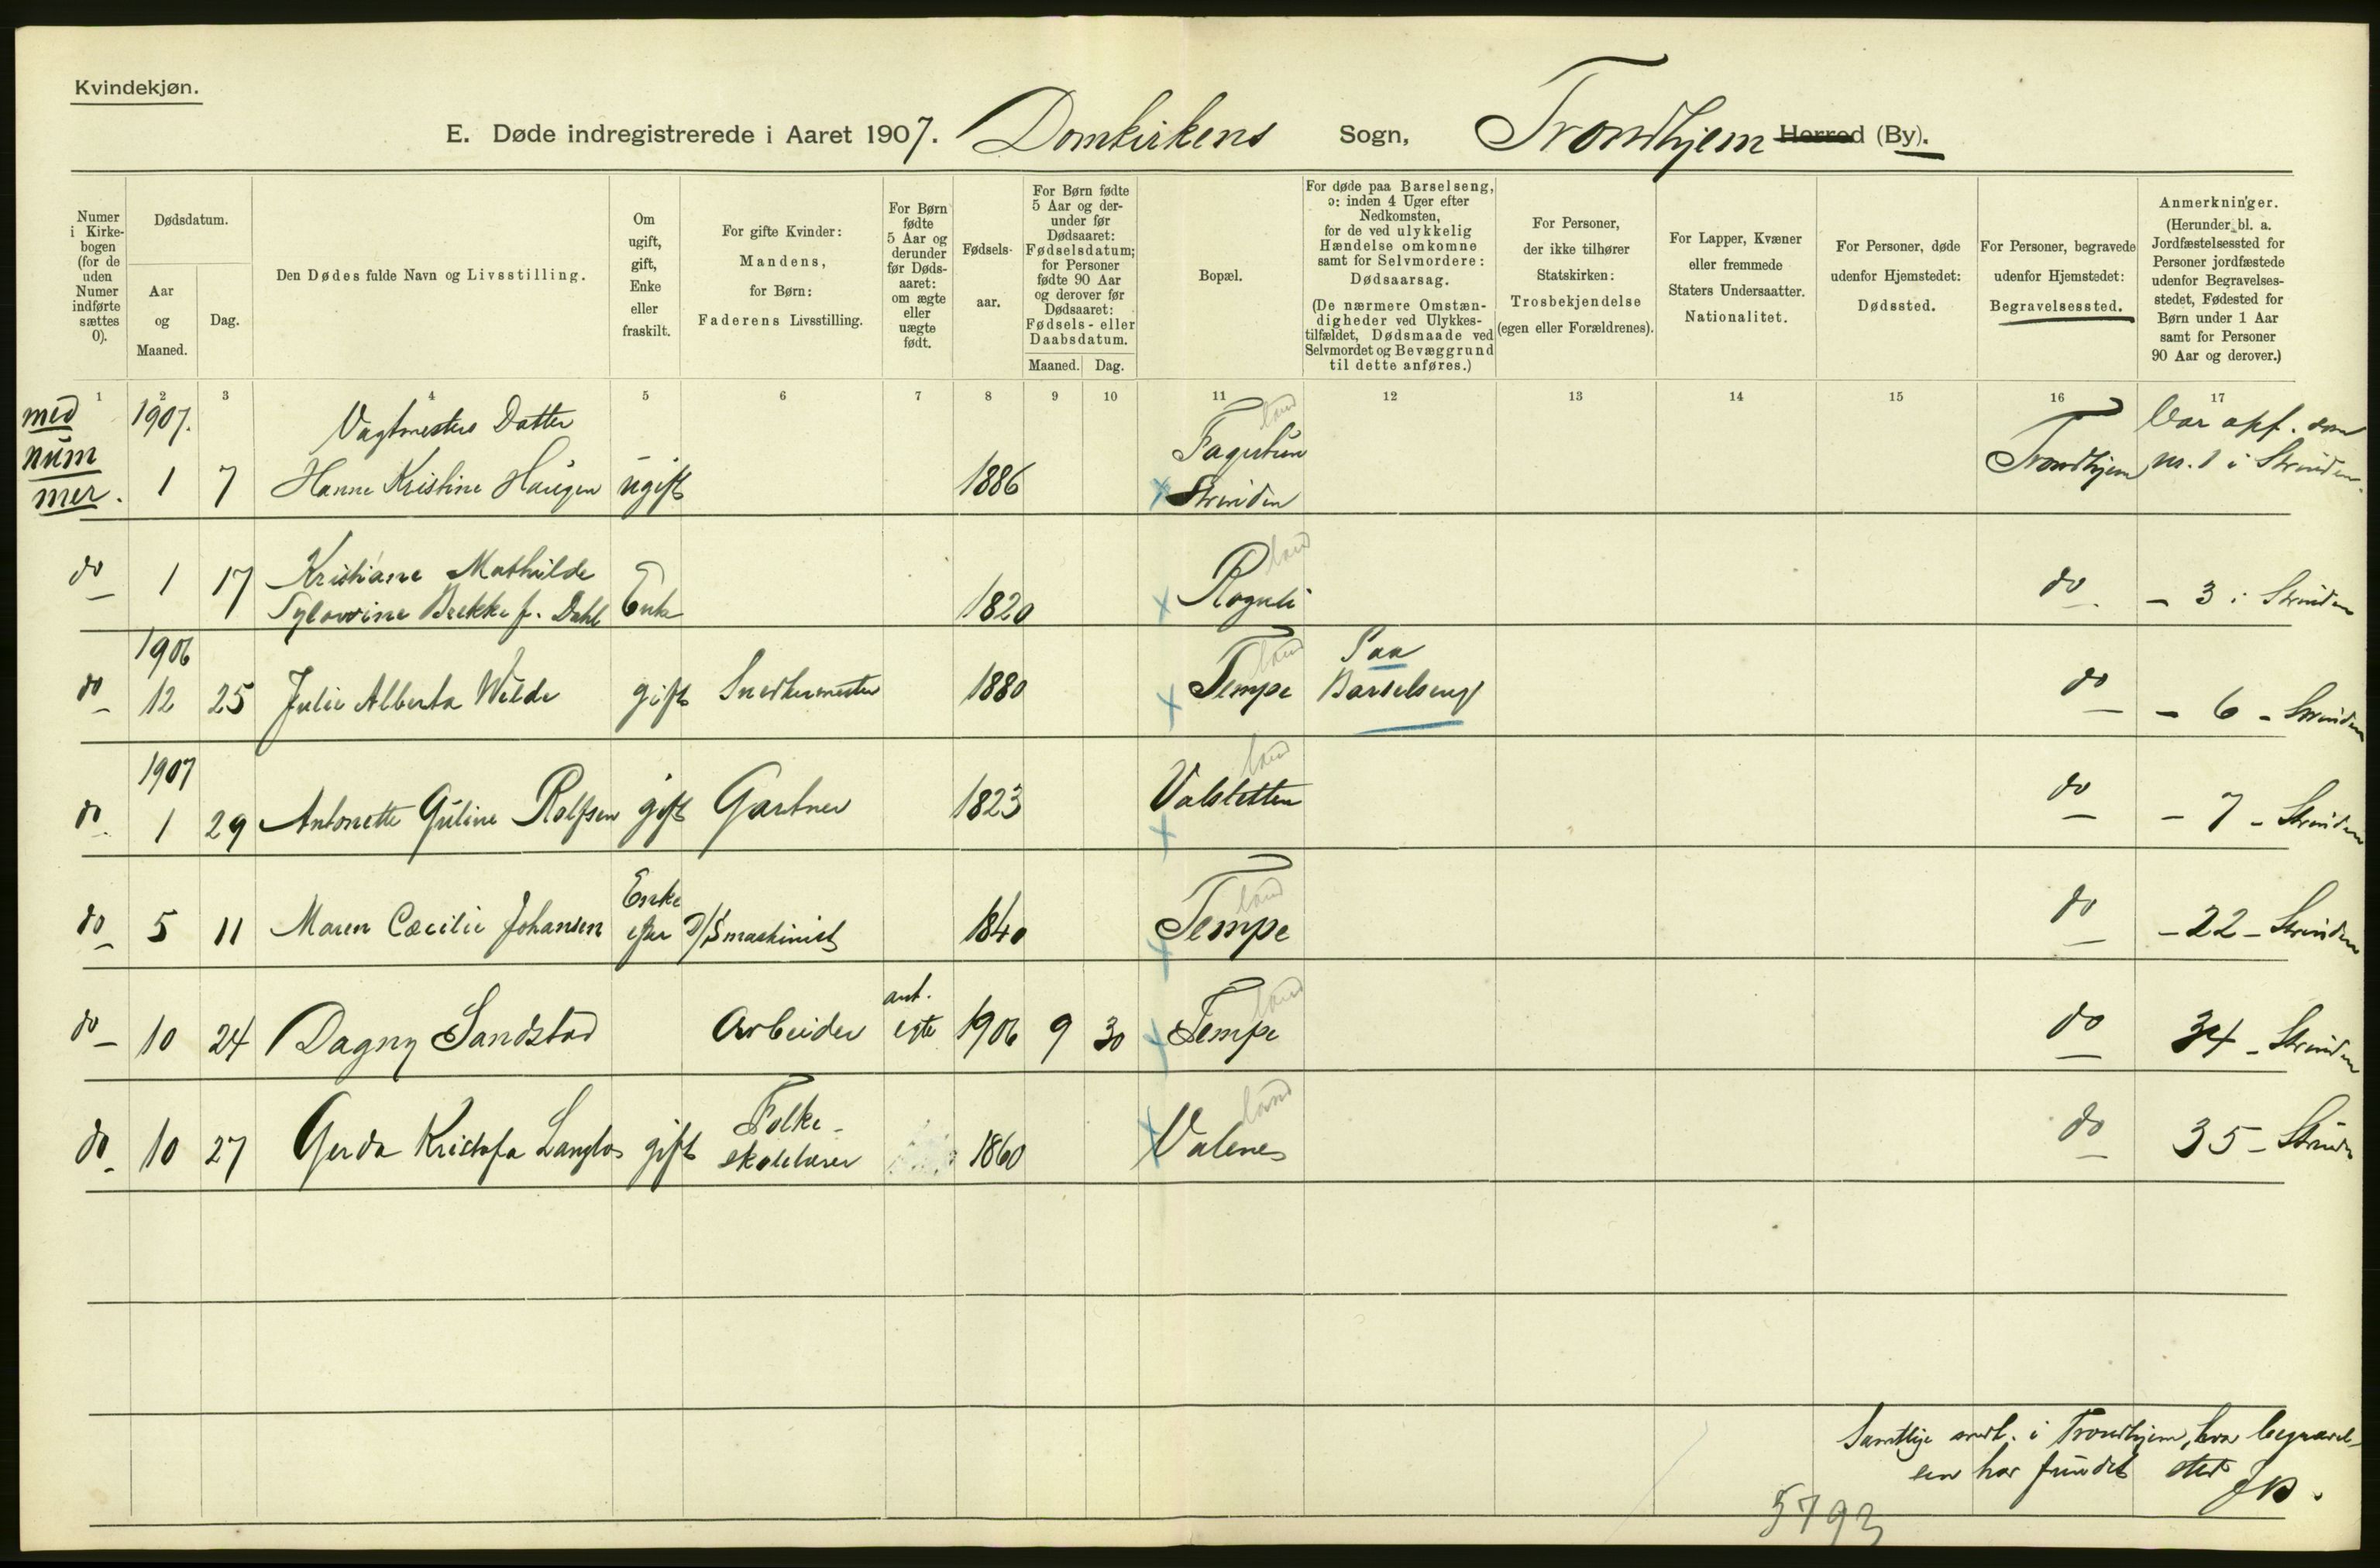 Kvindekjøn.
E. Døde indregistrerede i Aaret 1907. Domkirkens Sogn, Trondhjem Herred (By).
Numer i Kirkebogen (for de uden Numer indførte sættes 0).
Dødsdatum.
Aar og Maaned.
Dag.
Den Dødes fulde Navn og Livsstilling.
Om ugift, gift, Enke eller fraskilt.
For gifte Kvinder: Mandens, for Børn: Faderens Livsstilling.
For Børn fødte 5 Aar og derunder før Dødsaaret: om ægte eller uægte født.
Fødselsaar.
For Børn fødte 5 Aar og derunder før Dødsaaret: Fødselsdatum; for Personer fødte 90 Aar og derover før Dødsaaret: Fødsels- eller Daabsdatum.
Maaned. Dag.
Bopæl.
For døde paa Barselseng, ɔ: inden 4 Uger efter Nedkomsten, for de ved ulykkelig Hændelse omkomne samt for Selvmordere: Dødsaarsag.
(De nærmere Omstændigheder ved Ulykkestilfældet, Dødsmaade ved Selvmordet og Bevæggrund til dette anføres.)
For Personer, der ikke tilhører Statskirken: Trosbekjendelse (egen eller Forældrenes).
For Lapper, Kvæner eller fremmede Staters Undersaatter. Nationalitet.
For Personer, døde udenfor Hjemstedet: Dødssted.
For Personer, begravede udenfor Hjemstedet: Begravelsessted.
Anmerkninger.
(Herunder bl. a. Jordfæstelsessted for Personer jordfæstede udenfor Begravelsesstedet, Fødested for Børn under 1 Aar samt for Personer 90 Aar og derover.)
1 2 3 4 5 6 7 8 9 10 11 12 13 14 15 16 17
med 1907. Vagtmesters Datter land Var opf. som
num Fagertun
mer. 1 7 Hanne Kristine Haugen ugift 1886 Strinden Trondhjem nr. 1 i Strinden.
land
do 1 17 Kristiane Mathilde
Enke 1820 do - 3 i Strinden
Brekke f. Dahl
1906 land Paa
do 12 25 Julie Alberta Wilde gift Snedkermester 1880 Tempe Barselseng do - 6 - Strinden
1907 land
do 1 29 Antonette Guline Rolfsen gift Gartner 1823 do - 7 - Strinden
Enke land
do 5 11 Maren Cæcilie Johansen efter D/S maskinist 1840 Tempe do - 22 - Strinden
land
do 10 24 Dagny Sandstad Arbeider egte 1906 9 30 Tempe do 34 - Strinden
Folke- land
do 10 27 Gerda Kristofa gift skolelærer 1860 Valenes do 35 - Strinden
Samtlige i Trondhjem, hvor begravel-
sen har fundet sted
5793